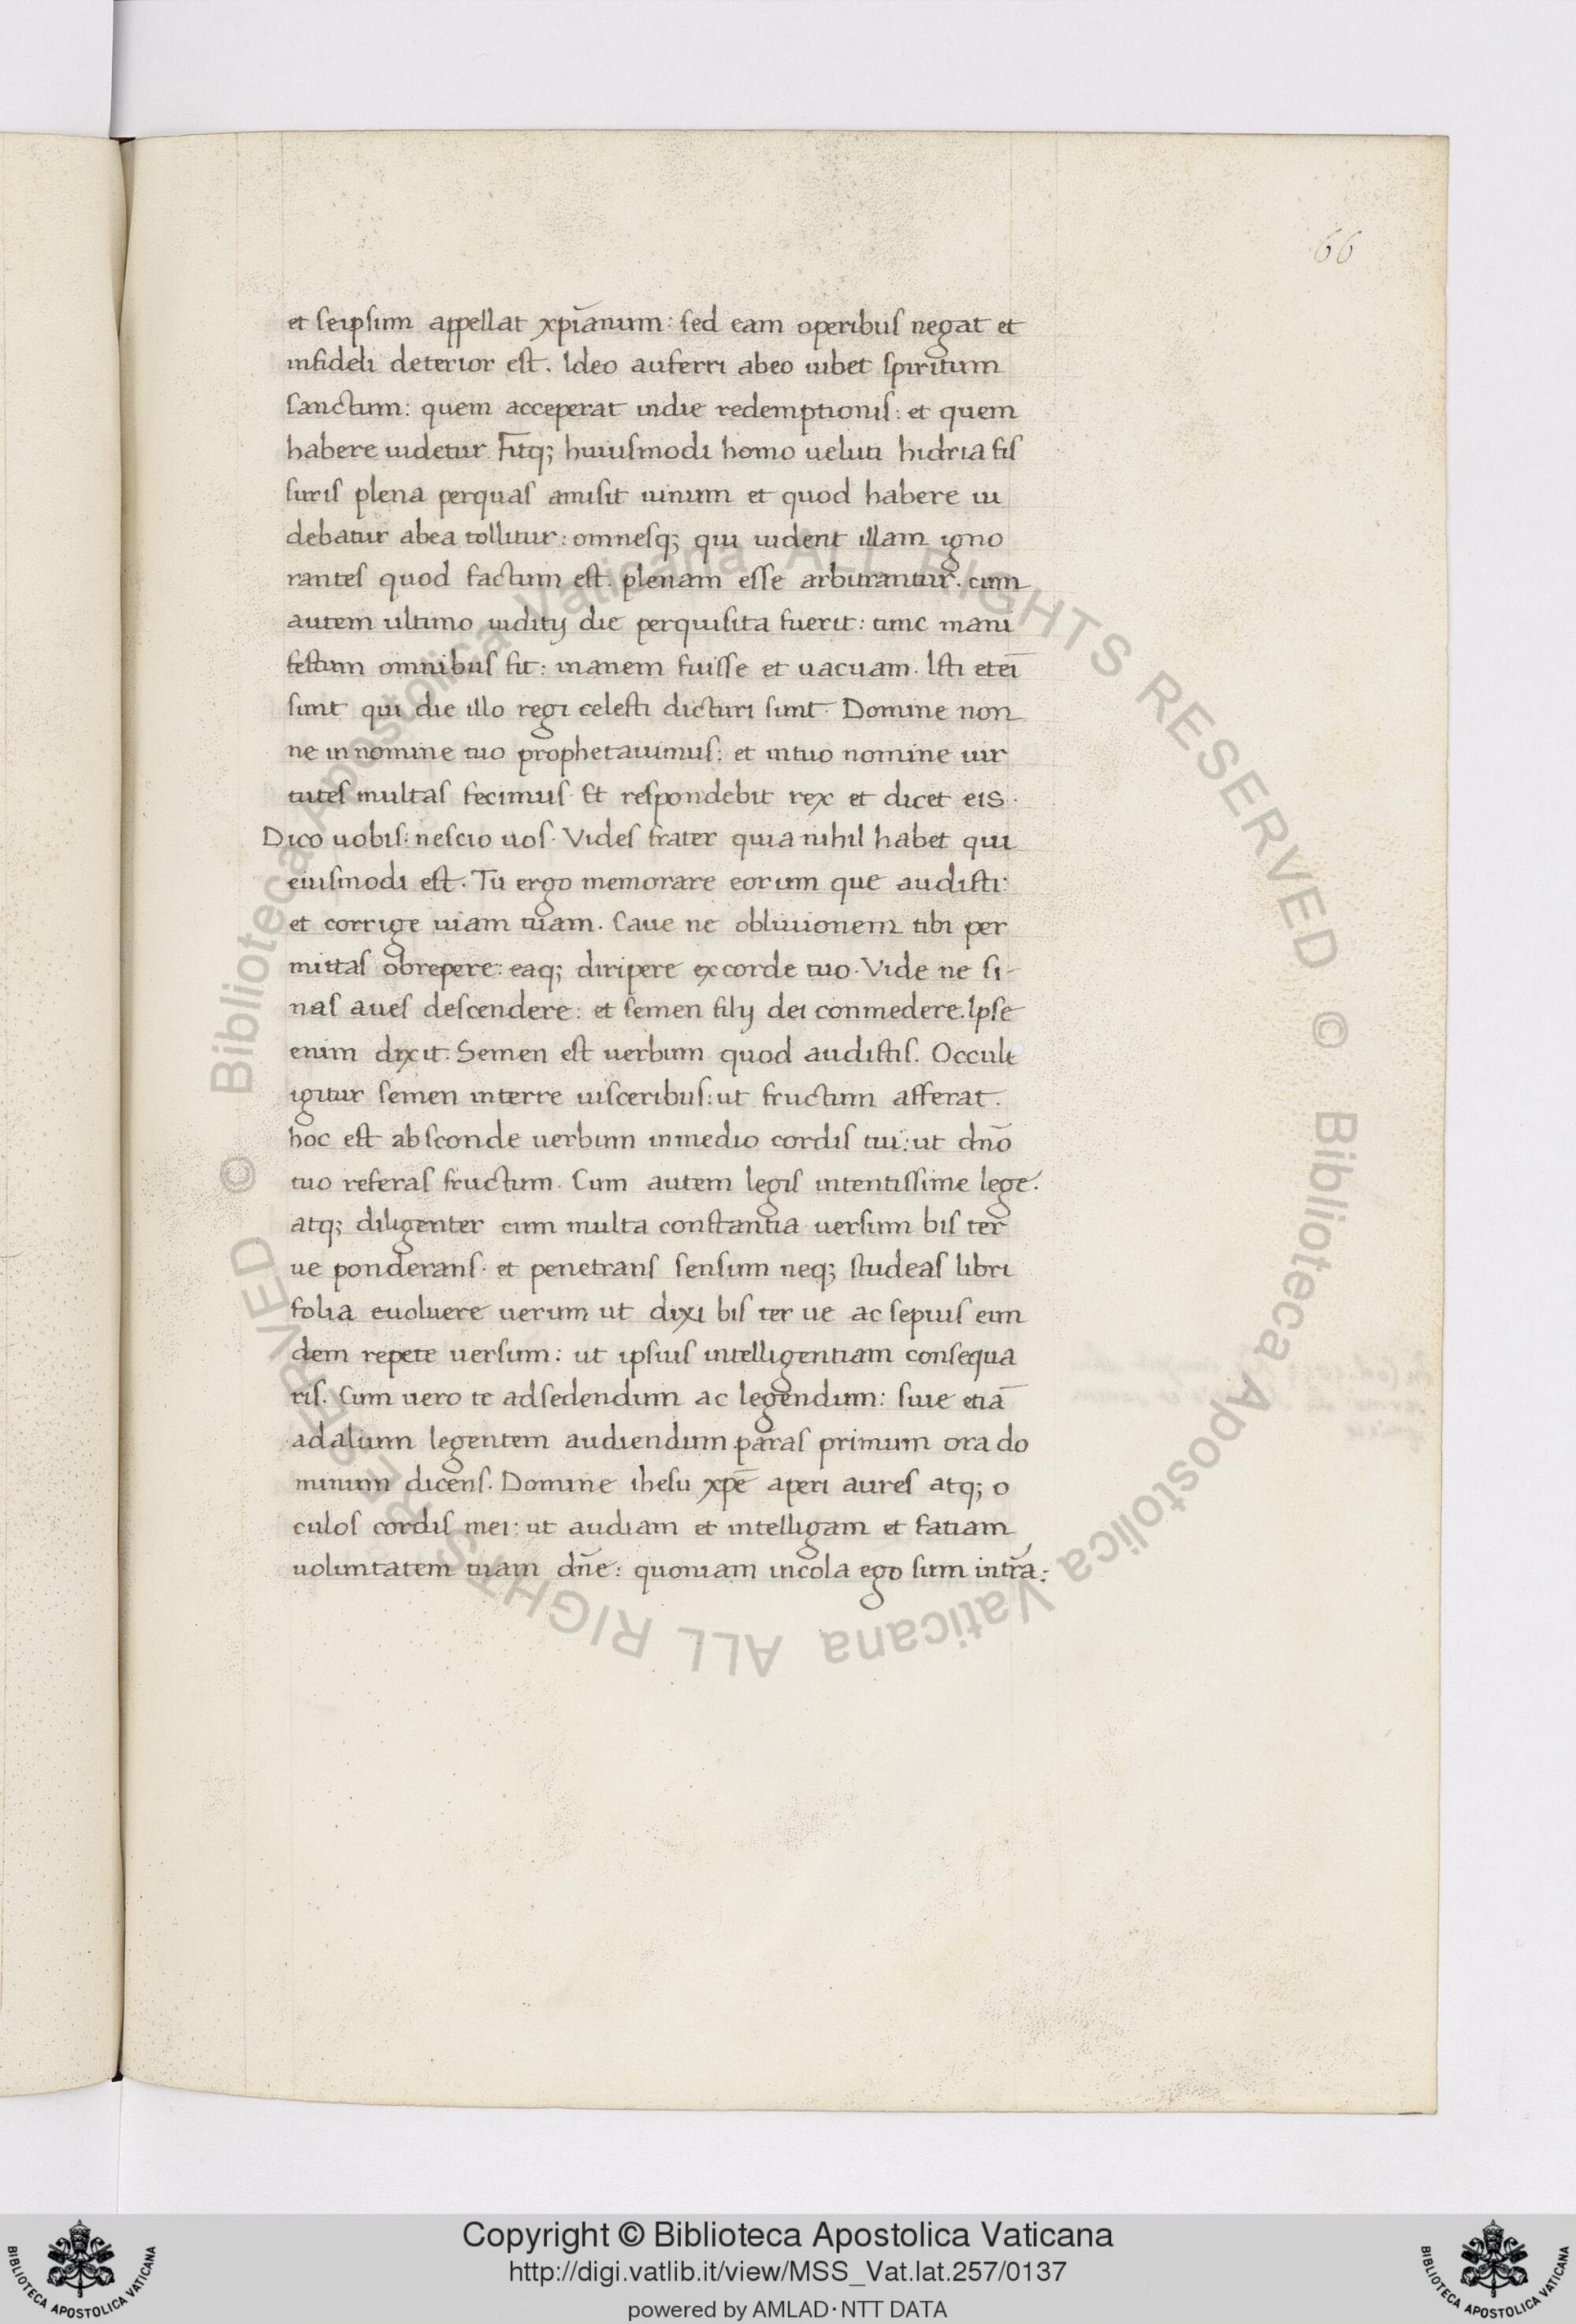 66
et seipsum appellat xp̄ianum: sed eam operibus negat et
infideli deterior est. Ideo auferri abeo iubet spiritum
sanctum: quem acceperat indie redemptionis: et quem
habere uidetur. Fitq; huiusmodi homo ueluti hidria fis
suris plena perquas amisit uinum et quod habere ui
debatur abea tollitur: omnesq; qui uident illam igno
rantes quod factum est. plenam esse arbitrantur. cum
autem ultimo iuditij die perquisita fuerit: tunc mani
festum omnibus fit: inanem fuisse et uacuam. Isti eteī
sunt qui die illo regi celesti dicturi sunt. Domine non
ne in nomine tuo prophetauimus: et intuo nomine uir
tutes multas fecimus. Et respondebit rex et dicet eis.
Dico uobis: nescio uos. Vides frater quia nihil habet qui
eiusmodi est. Tu ergo memorare eorum que audisti:
et corrige uiam tuam. Caue ne obliuionem tibi per
mittas obrepere: eaq; diripere excorde tuo. Vide ne si-
nas aues descendere: et semen filij dei conmedere. Ipse
enim dixit: Semen est uerbum quod audistis. Occule
igitur semen interre uisceribus: ut fructum afferat.
hoc est absconde uerbum inmedio cordis tui: ut dn̄o
tuo referas fructum. Cum autem legis intentissime lege.
atq; diligenter cum multa constantia uersum bis ter
ue ponderans. et penetrans sensum neq; studeas libri
folia euoluere uerum ut dixi bis ter ue ac sepius eun
dem repete uersum: ut ipsius intelligentiam consequa
ris. Cum uero te adsedendum ac legendum: siue etiā
adalium legentem audiendum paras primum ora do
minum dicens. Domine ihesu xp̄e aperi aures atq; o
culos cordis mei: ut audiam et intelligam et fatiam
uoluntatem tuam dn̄e: quoniam incola ego sum intr̄a:
© Biblioteca Apostolica Vaticana ALL RIGHTS RESERVED
© Biblioteca Apostolica Vaticana ALL RIGHTS RESERVED
Copyright © Biblioteca Apostolica Vaticana
http://digi.vatlib.it/view/MSS_Vat.lat.257/0137
powered by AMLAD·NTT DATA
BIBLIOTECA APOSTOLICA VATICANA
BIBLIOTECA APOSTOLICA VATICANA